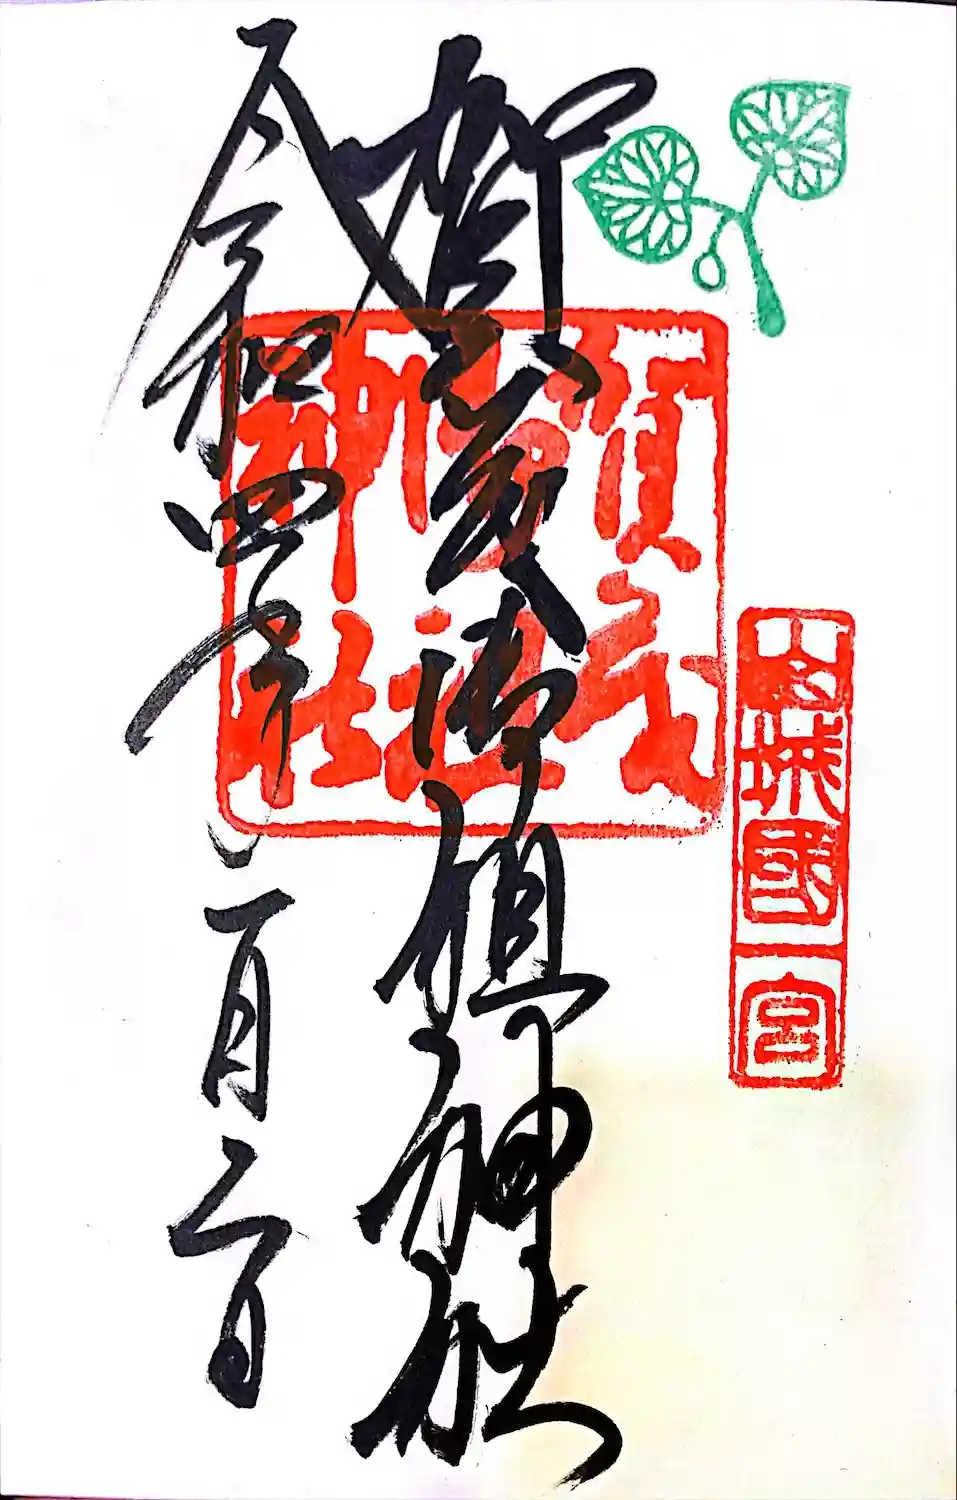 山城國一宮
賀茂御祖神社
賀茂
御祖
神社
令和四年二月二日